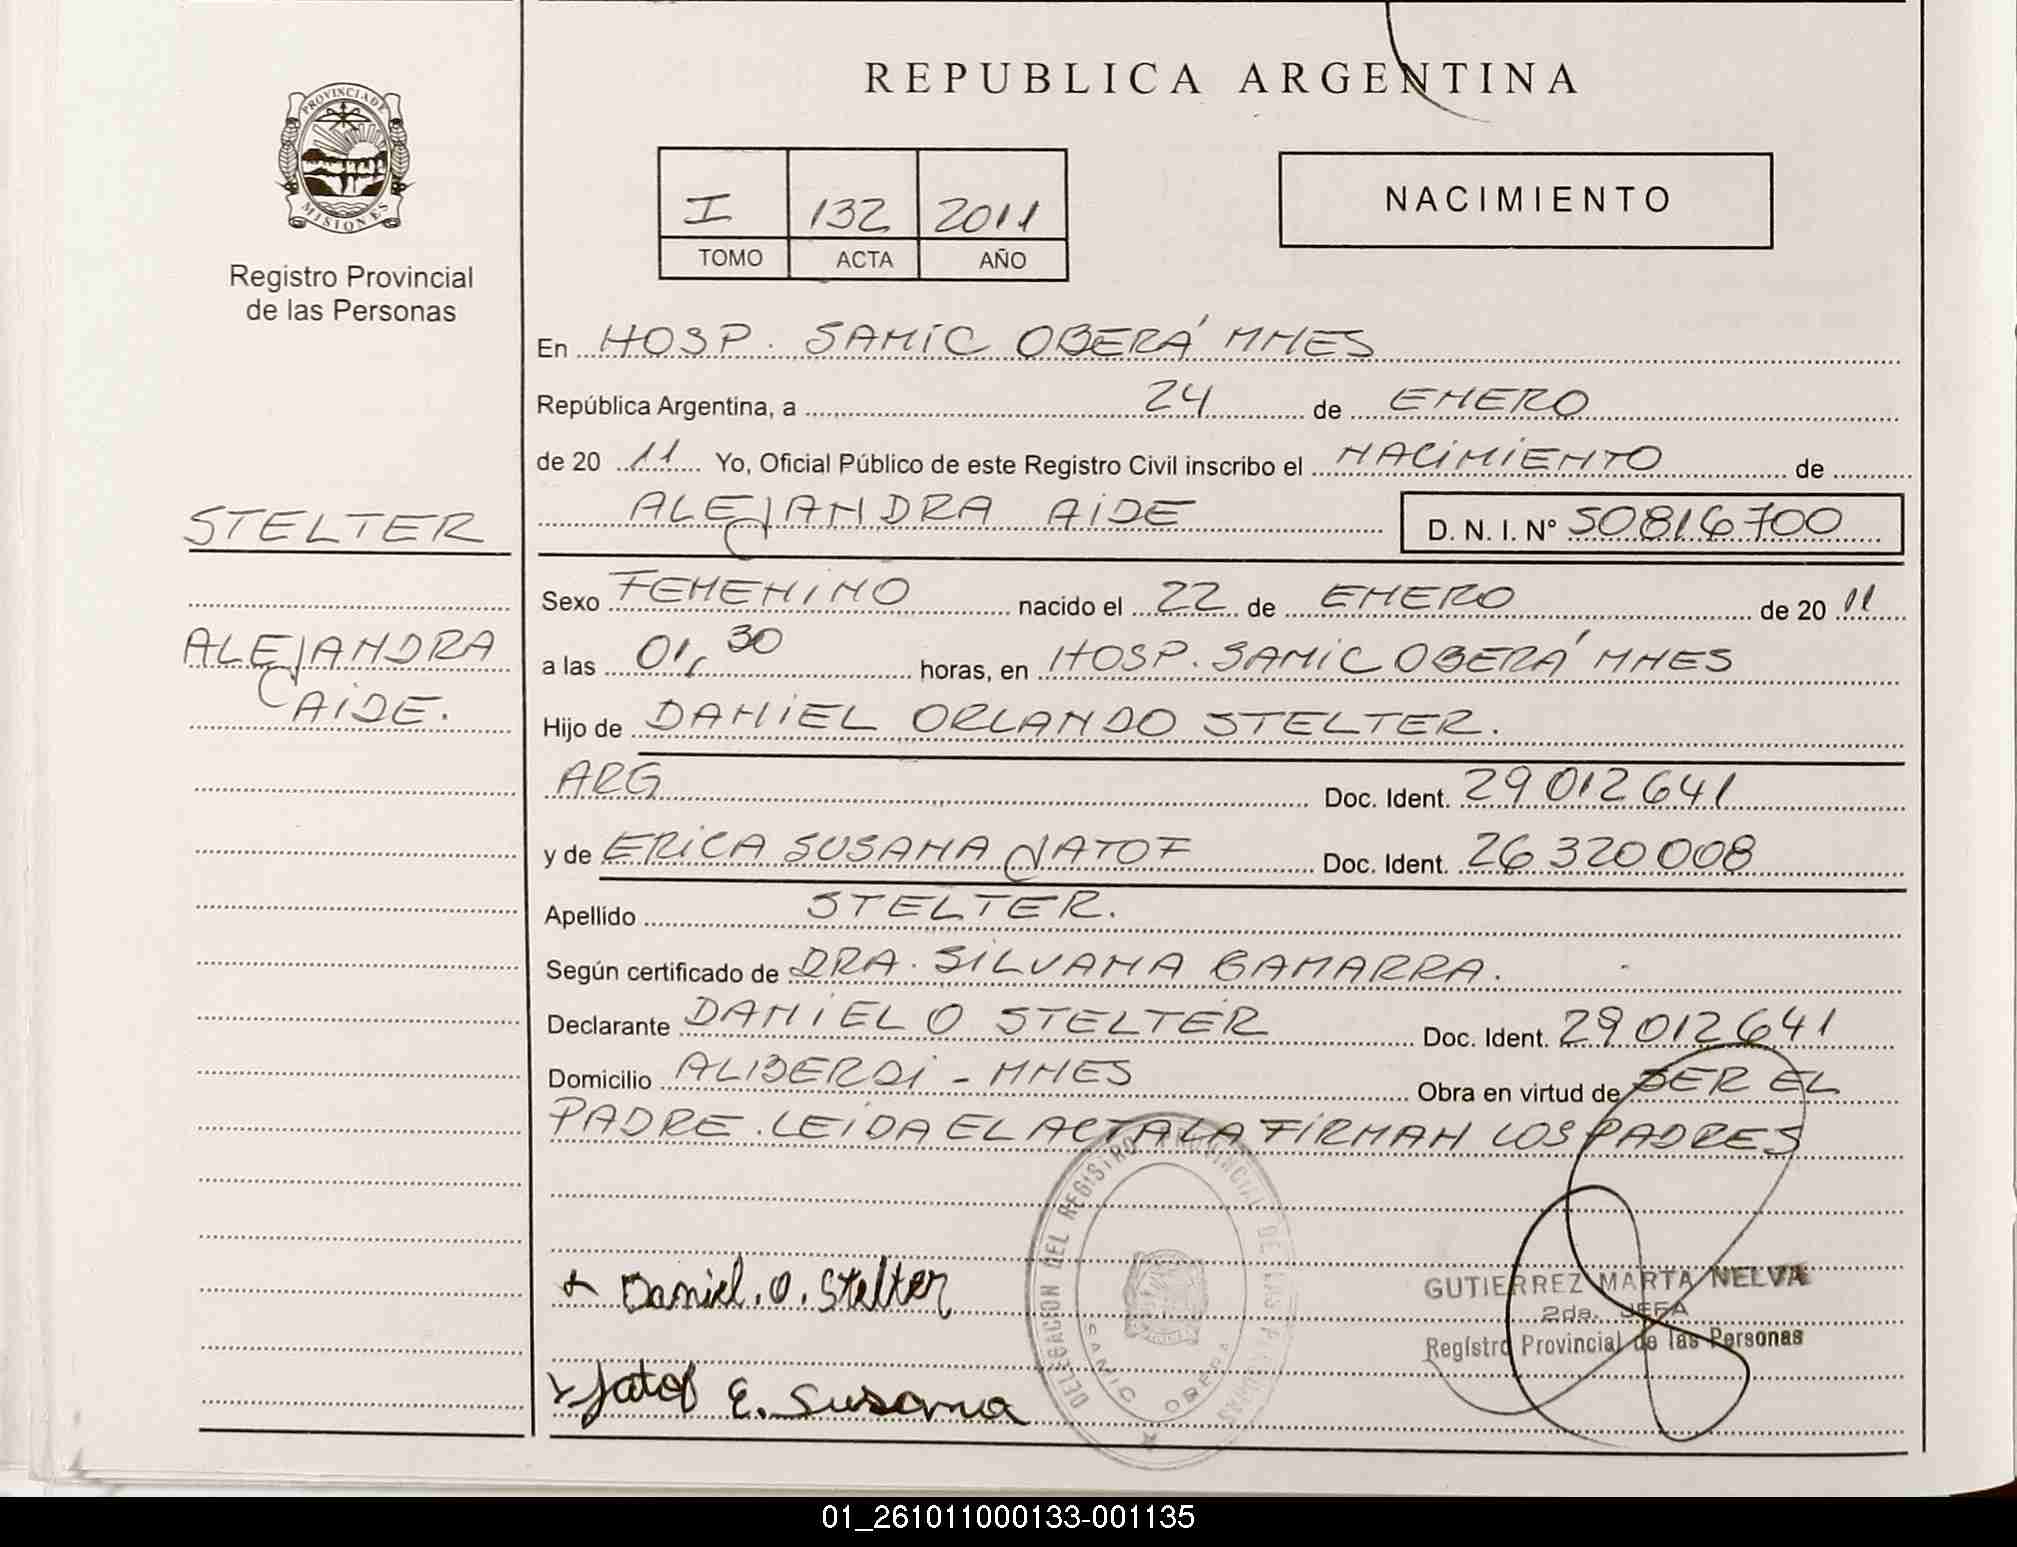 REPUBLICA ARGENTINA
PROVINCIA DE
MISIONES
Registro Provincial
de las Personas
I 132 2011
TOMO ACTA AÑO
NACIMIENTO
En HOSP. SAMIC OBERÁ MNES
República Argentina, a 24 de ENERO
de 20 11 Yo, Oficial Público de este Registro Civil inscribo el NACIMIENTO de
ALEJANDRA AIDE D. N. I. Nº 50816700
STELTER
ALEJANDRA
AIDE.
Sexo FEMENINO nacido el 22 de ENERO de 20 11
a las 01,30 horas, en HOSP. SAMIC OBERÁ MNES
Hijo de DANIEL ORLANDO STELTER.
ARG Doc. Ident. 29012641
y de ERICA SUSANA JATOF Doc. Ident. 26320008
Apellido STELTER.
Según certificado de DRA. SILVANA GAMARRA.
Declarante DANIEL O STELTER Doc. Ident. 29012641
Domicilio ALBERDI - MNES Obra en virtud de SER EL
PADRE. LEIDA EL ACTA LA FIRMAN LOS PADRES
DELEGACION DEL REGISTRO PROVINCIAL DE LAS PERSONAS
SAMIC OBERA
Daniel. O. Stelter
Jatof E. Susana
GUTIERREZ MARTA NELVA
2da. JEFA
Registro Provincial de las Personas
01_261011000133-001135